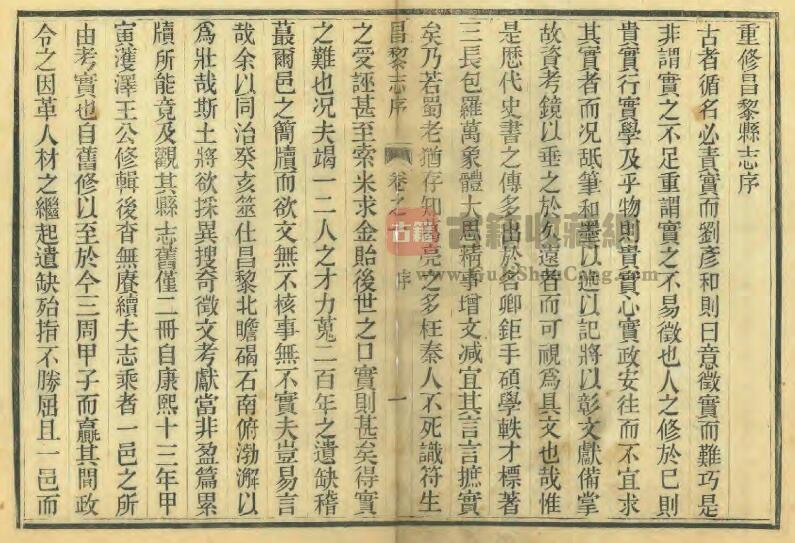 重修昌黎縣志序
古者循名必責實而劉彥和則曰意徵實而難巧是
非謂實之不足重謂實之不易徵也人之修於己則
貴實行實學及乎物則貴實心實政安往而不宜求
其實者而況舐筆和墨以述以記將以彰文獻備掌
故資考鏡以垂之於久遠者而可視爲具文也哉惟
是歷代史書之傳多出於名卿鉅手碩學軼才標著
三長包羅萬象體大思精事增文减宜其言言摭實
矣乃若蜀老猶存知葛亮之多枉秦人不死識符生
昌黎志序
卷之
序
一
之受誣甚至索米求金貽後世之口實則甚矣得實
之難也况夫竭一二人之才力蒐二百年之遺缺稽
蕞爾邑之簡牘而欲文無不核事無不實夫豈易言
哉余以同治癸亥筮仕昌黎北瞻碣石南俯渤澥以
爲壯哉斯土將欲採異搜奇徵文考獻當非盈篇累
牘所能竟及觀其縣志舊僅二冊自康熙十三年甲
寅濩澤王公修輯後杳無賡續夫志乘者一邑之所
由考實也自舊修以至於今三周甲子而贏其間政
令之因革人材之繼起遺缺殆指不勝屈且一邑而
古籍
古籍收藏網
www.GuJiShuCang.com